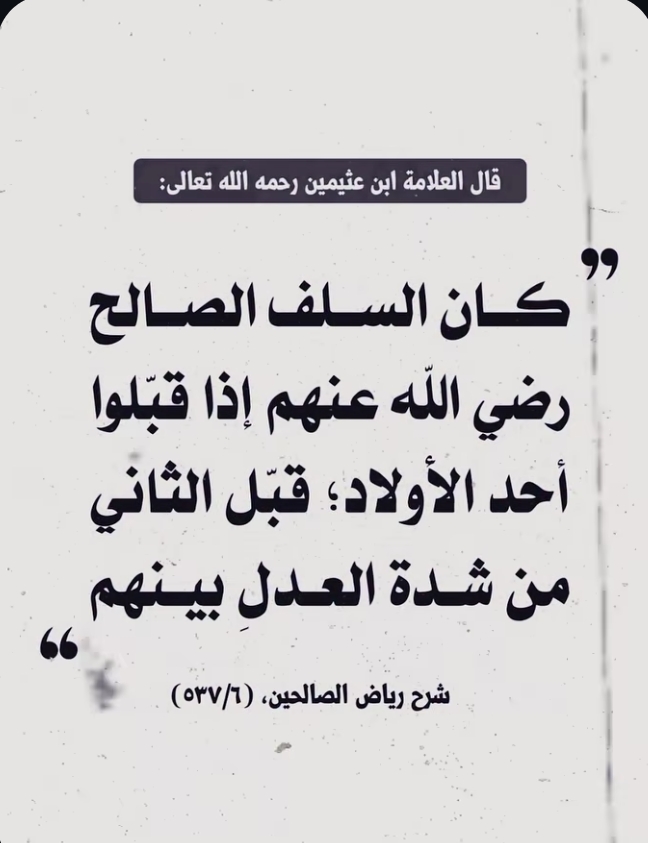 قال العلامة ابن عثيمين رحمه الله تعالى:
”
كان السلف الصالح
رضي الله عنهم إذا قبّلوا
أحد الأولاد؛ قبّل الثاني
من شدة العدلِ بينهم
“
شرح رياض الصالحين، (٥٣٧/٦)